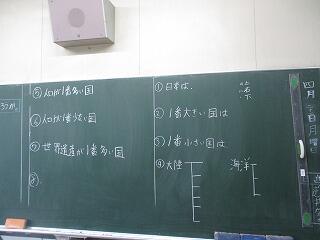 ①日本は、
②1番大きい国は
③1番小さい国は
④大陸
海洋
⑤人口が1番多い国
⑥人口が1番少ない国
⑦世界遺産が1番多い国
⑧
四月
日月曜日